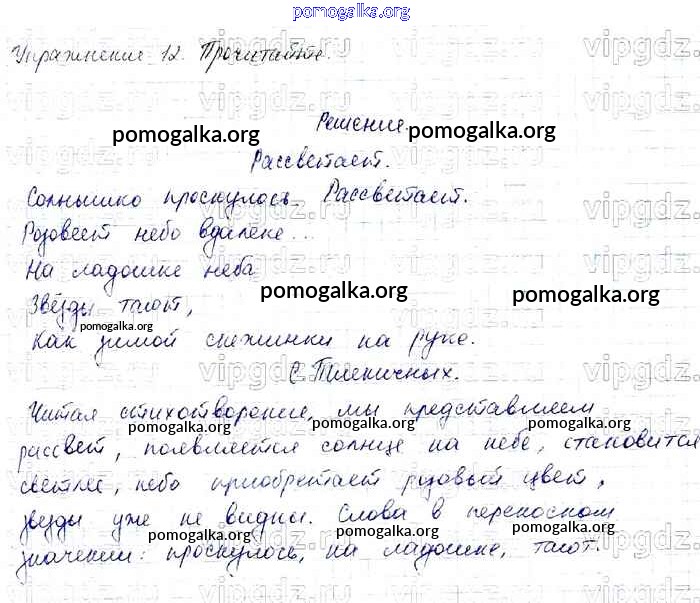 pomogalka.org
Упражнение 12. Прочитайте.
vipgdz.ru
Решение.
pomogalka.org pomogalka.org
Рассветает.
Солнышко проснулось. Рассветает.
Розовеет небо вдалеке...
На ладошке неба
Звёзды тают,
pomogalka.org pomogalka.org
pomogalka.org
Как зимой снежинки на руке.
С. Пшеничных.
Читая стихотворение, мы представляем
pomogalka.org pomogalka.org pomogalka.org
рассвет, появляется солнце на небе, становится
светлее, небо приобретает розовый цвет,
звезды уже не видны. Слова в переносном
pomogalka.org pomogalka.org pomogalka.org
значении: проснулось, на ладошке, тают.